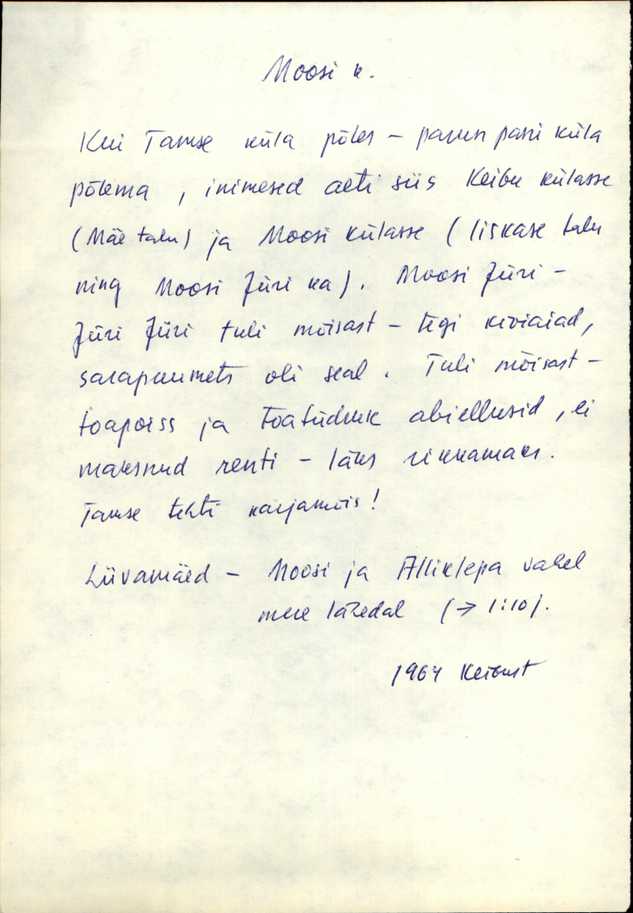 Moosi k.
Kui Tamse küla põles – parun pani küla
põlema, inimesed aeti siis Keibu külasse
(Mäe talu) ja Moosi külasse (Iiskase talu
ning Moosi Jüri ka). Moosi Jüri –
Jüri Jüri tuli mõisast – tegi kiviaiad,
sarapuumets oli seal. Tuli mõisast –
toapoiss ja toatüdruk abiellusid, ei
maksnud renti – läks rikkamaks.
Tamse tehti karjamõis!
Liivamäed – Moosi ja Alliklepa vahel
mere lähedal (→ 1:10).
1964 Keibust